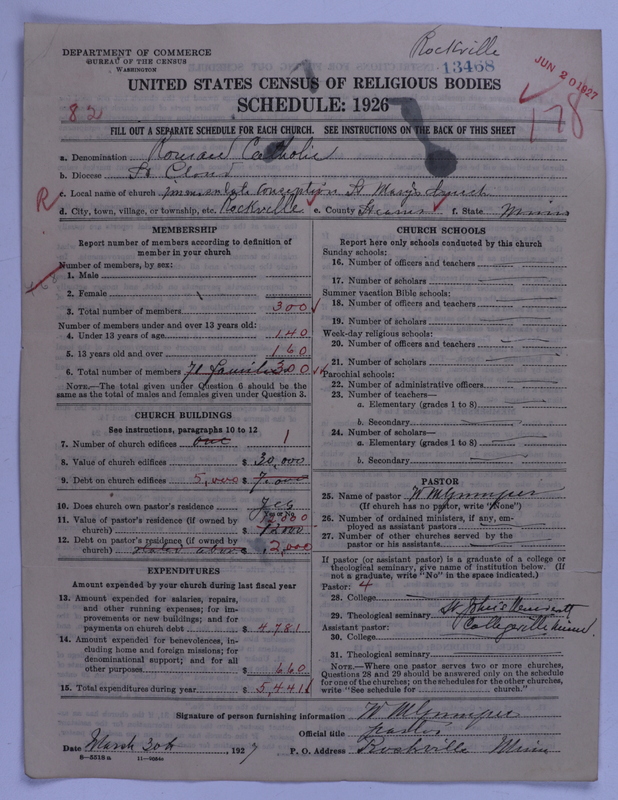 Rockville
DEPARTMENT OF COMMERCE
BUREAU OF THE CENSUS
WASHINGTON
13468
JUN 20 1927
UNITED STATES CENSUS OF RELIGIOUS BODIES
SCHEDULE: 1926
82
178
FILL OUT A SEPARATE SCHEDULE FOR EACH CHURCH. SEE INSTRUCTIONS ON THE BACK OF THIS SHEET
a. Denomination Roman Catholic
b. Diocese St Cloud
c. Local name of church Immaculate Conception St Mary's Church
R
d. City, town, village, or township, etc. Rockville e. County Stearns f. State Minn
MEMBERSHIP
Report number of members according to definition of
member in your church
Number of members, by sex:
1. Male
2. Female
3. Total number of members 300
Number of members under and over 13 years old:
4. Under 13 years of age 140
5. 13 years old and over 160
6. Total number of members 71 families 300
NOTE.—The total given under Question 6 should be the
same as the total of males and females given under Question 3.
CHURCH BUILDINGS
See instructions, paragraphs 10 to 12
7. Number of church edifices one 1
8. Value of church edifices $ 30,000
9. Debt on church edifices 5,000 $ 7,000
10. Does church own pastor's residence Yes
Yes or No
11. Value of pastor's residence (if owned by
church) $ 12,000
12. Debt on pastor's residence (if owned by
church) stated above 2,000
EXPENDITURES
Amount expended by your church during last fiscal year
13. Amount expended for salaries, repairs,
and other running expenses; for im-
provements or new buildings; and for
payments on church debt $ 4,781
14. Amount expended for benevolences, in-
cluding home and foreign missions; for
denominational support; and for all
other purposes $ 660
15. Total expenditures during year $ 5,441
CHURCH SCHOOLS
Report here only schools conducted by this church
Sunday schools:
16. Number of officers and teachers
17. Number of scholars
Summer vacation Bible schools:
18. Number of officers and teachers
19. Number of scholars
Week-day religious schools:
20. Number of officers and teachers
21. Number of scholars
Parochial schools:
22. Number of administrative officers
23. Number of teachers—
a. Elementary (grades 1 to 8)
b. Secondary
24. Number of scholars—
a. Elementary (grades 1 to 8)
b. Secondary
PASTOR
25. Name of pastor W M
(If church has no pastor, write "None")
26. Number of ordained ministers, if any, em-
ployed as assistant pastors
27. Number of other churches served by the
pastor or his assistants
If pastor (or assistant pastor) is a graduate of a college or
theological seminary, give name of institution below. (If
not a graduate, write "No" in the space indicated.)
Pastor: 4
28. College
29. Theological seminary St John's
Assistant pastor: Collegeville Minn.
30. College
31. Theological seminary
NOTE.—Where one pastor serves two or more churches,
Questions 28 and 29 should be answered only on the schedule
for one of the churches; on the schedules for the other churches,
write "See schedule for church."
Signature of person furnishing information W M
Official title Pastor
Date March 30th, 1927 P. O. Address Rockville Minn
8—5518a 11—9564a